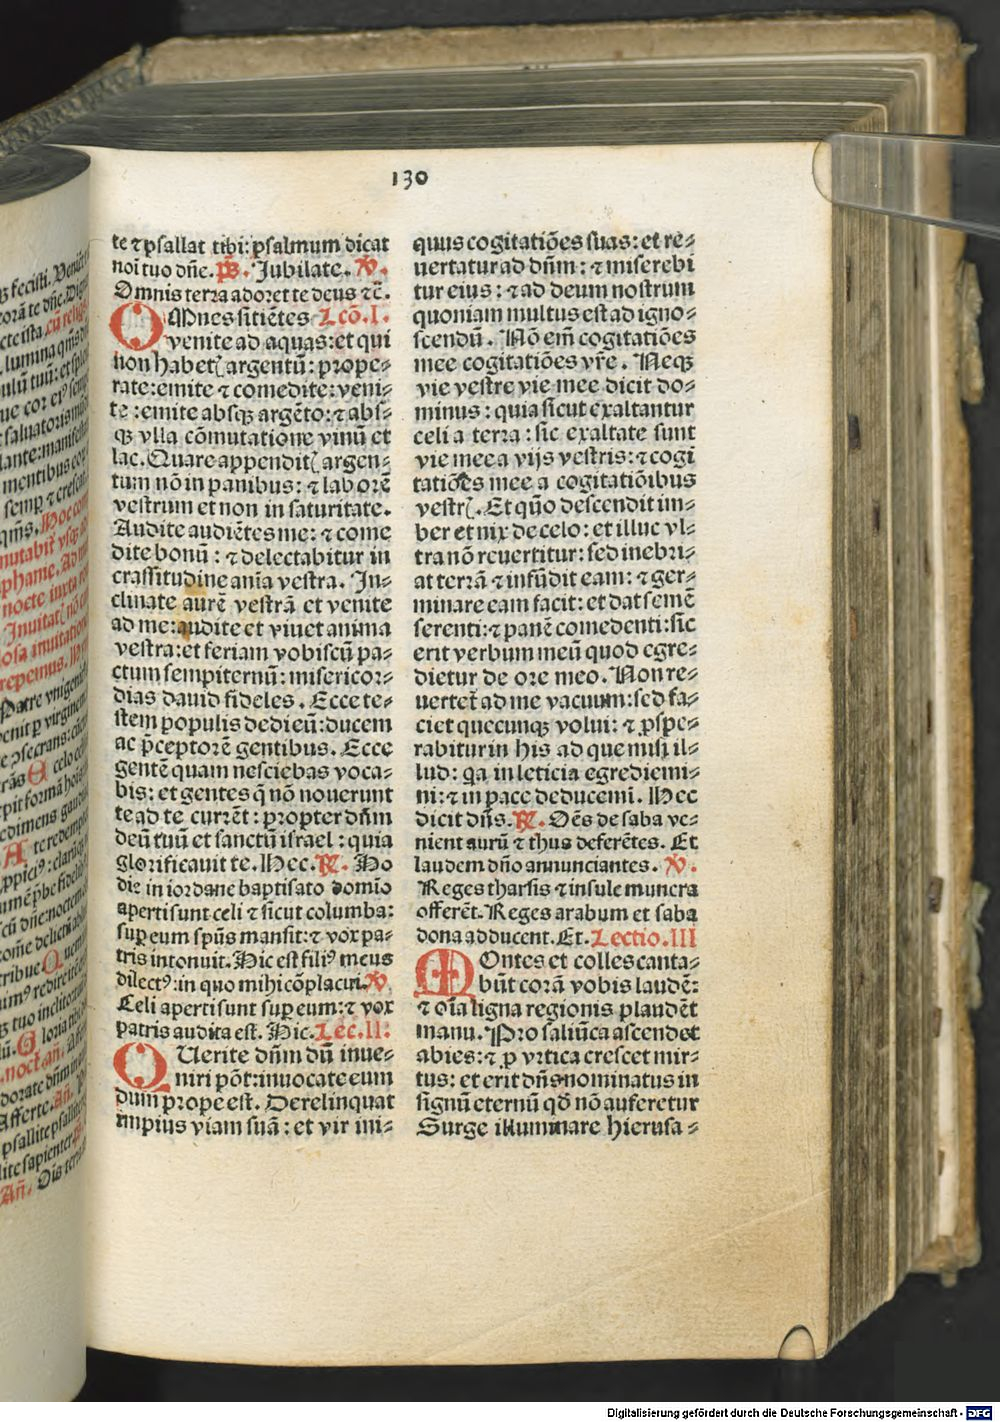 130
te ⁊ psallat tibi: psalmum dicat
noĩ tuo dñe. ps̃. Jubilate. ℣.
Omnis terra adoret te deus ⁊c̃.
OMnes sitiẽtes Lcõ. I.
venite ad aquas: et qui
non habetꝭ argentũ: prope⸗
rate: emite ⁊ comedite: veni⸗
te: emite absqꝫ argẽto: ⁊ abs⸗
qꝫ vlla cõmutatione vinũ et
lac. Quare appenditꝭ argen⸗
tum nõ in panibus: ⁊ laborẽ
vestrum et non in saturitate.
Audite audiẽtes me: ⁊ come
dite bonũ: ⁊ delectabitur in
crassitudine anĩa vestra. In⸗
clinate aurẽ vestrã et venite
ad me: audite et viuet anima
vestra: et feriam vobiscũ pa⸗
ctum sempiternũ: misericor⸗
dias dauid fideles. Ecce te⸗
stem populis dedi eũ: ducem
ac p̃ceptorẽ gentibus. Ecce
gentẽ quam nesciebas voca⸗
bis: et gentes q̃ nõ nouerunt
te ad te currẽt: propter dñm
deũ tuũ et sanctũ israel: quia
glorificauit te. Hec. ℟. Ho
die in iordane baptisato domĩo
aperti sunt celi ⁊ sicut columba:
suꝑ eum spũs mansit: ⁊ vox pa⸗
tris intonuit. Hic est filiꝰ meus
dilectꝰ: in quo mihi cõplacui. ℣.
Celi aperti sunt suꝑ eum: ⁊ vox
patris audita est. Hic. Lec. II:
QUerite dñm dũ inue⸗
niri põt: inuocate eum
dum prope est. Derelinquat
impius viam suã: et vir ini⸗
quus cogitatiões suas: et re⸗
uertatur ad dñm: ⁊ miserebi
tur eius: ⁊ ad deum nostrum
quoniam multus est ad igno⸗
scendũ. Nõ em̃ cogitatiões
mee cogitatiões vr̃e. Neqꝫ
vie vestre vie mee dicit do⸗
minus: quia sicut exaltantur
celi a terra: sic exaltate sunt
vie mee a vijs vestris: ⁊ cogi
tatiões mee a cogitatiõibus
vestrꝭ. Et quõ descendit im⸗
ber et nix de celo: et illuc vl⸗
tra nõ reuertitur: sed inebri⸗
at terrã ⁊ infũdit eam: ⁊ ger⸗
minare eam facit: et dat semẽ
serenti: ⁊ panẽ comedenti: sic
erit verbum meũ quod egre⸗
dietur de ore meo. Non re⸗
uertet̃ ad me vacuum: sed fa⸗
ciet quecunqꝫ volui: ⁊ ꝓspe⸗
rabitur in his ad que misi il⸗
lud: qa in leticia egrediemi⸗
ni: ⁊ in pace deducemĩ. Hec
dicit dñs. ℟. Oẽs de saba ve⸗
nient aurũ ⁊ thus deferẽtes. Et
laudem dño annunciantes. ℣.
Reges tharsis ⁊ insule munera
offerẽt. Reges arabum et saba
dona adducent. Et. Lectio. III
MOntes et colles canta⸗
bũt corã vobis laudẽ:
⁊ oĩa ligna regionis plaudẽt
manu. Pro saliũca ascendet
abies: ⁊ ꝓ vrtica crescet mir⸗
tus: et erit dñs nominatus in
signũ eternũ qđ nõ auferetur
Surge illuminare hierusa⸗
Digitalisierung gefördert durch die Deutsche Forschungsgemeinschaft - DFG